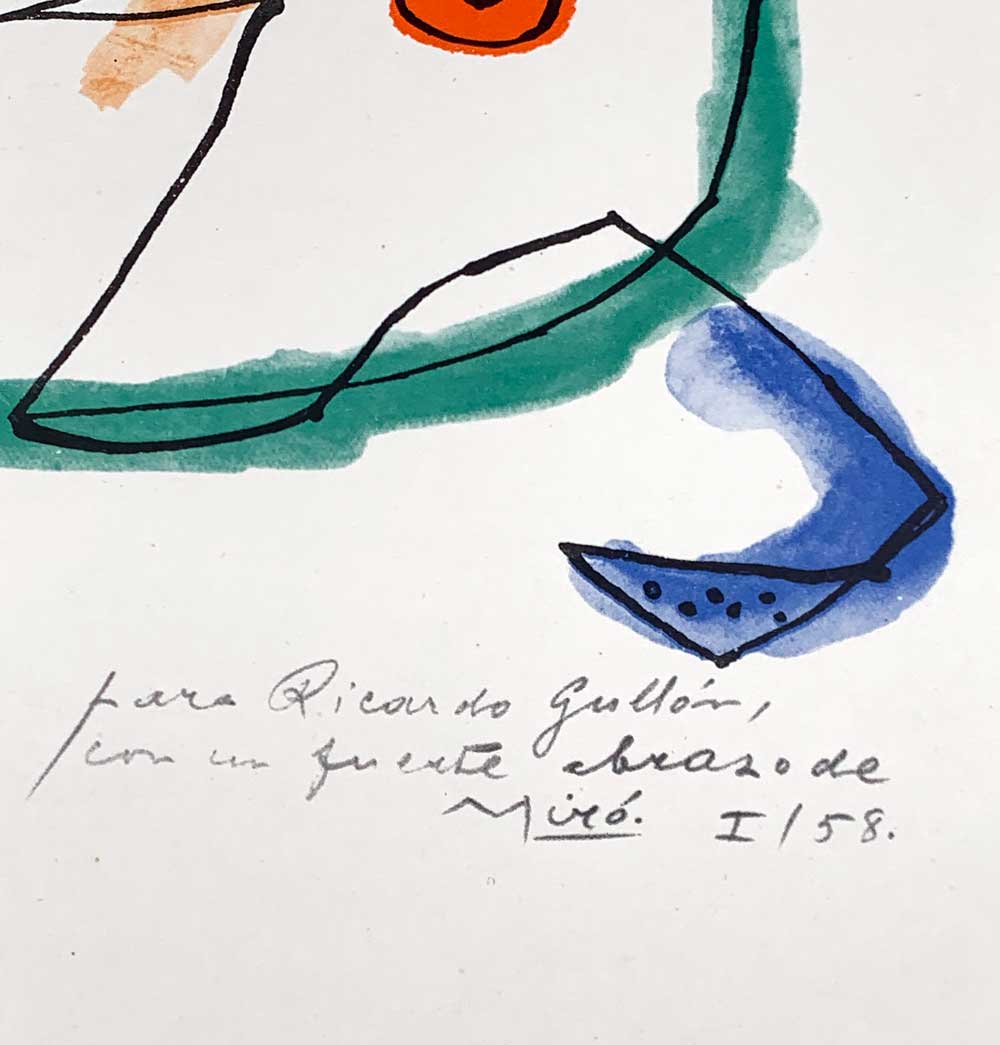 para Ricardo Gullón,
con un fuerte abrazo de
Miró. I/58.